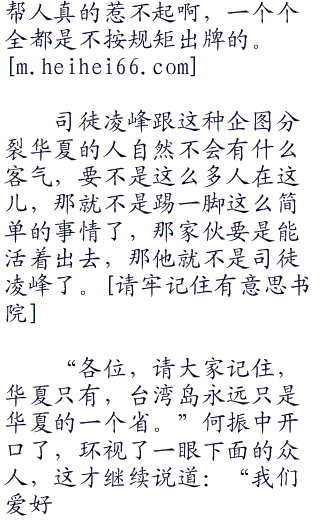 帮人真的惹不起啊，一个个
全都是不按规矩出牌的。
[m.heihei66.com]
司徒凌峰跟这种企图分
裂华夏的人自然不会有什么
客气，要不是这么多人在这
儿，那就不是踢一脚这么简
单的事情了，那家伙要是能
活着出去，那他就不是司徒
凌峰了。[请牢记住有意思书
院]
“各位，请大家记住，
华夏只有，台湾岛永远只是
华夏的一个省。”何振中开
口了，环视了一眼下面的众
人，这才继续说道：“我们
爱好